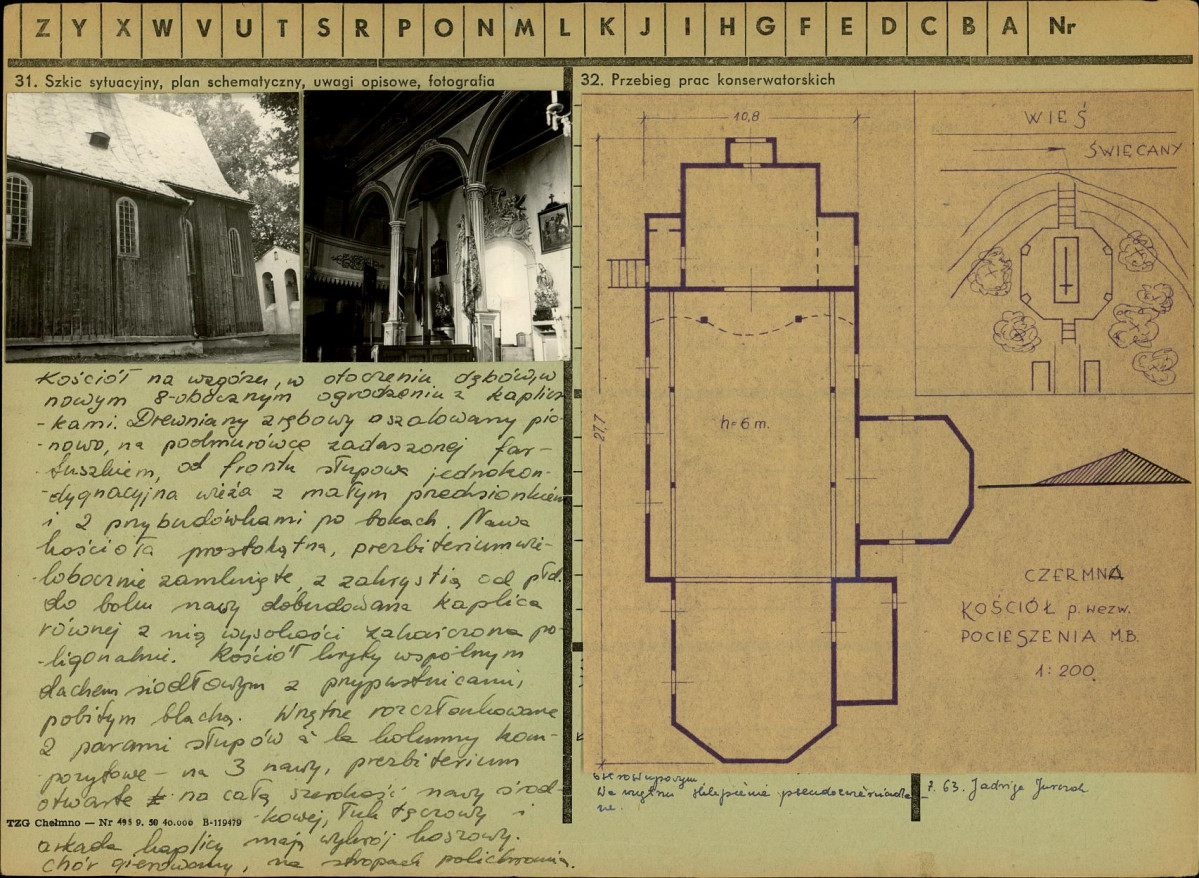 Z Y X W V U T S R P O N M L K J I H G F E D C B A Nr
31. Szkic sytuacyjny, plan schematyczny, uwagi opisowe, fotografia
Kościół na wzgórzu, w otoczeniu dębów, w
nowym 8-obocznym ogrodzeniu z kaplicz
-kami. Drewniany zrębowy oszalowany pio-
-nowo, na podmurówce zadaszonej far-
-tuszkiem, od frontu słupowa jednokon-
-dygnacyjna wieża z małym przedsionkiem
i 2 przybudówkami po bokach. Nawa
kościoła prostokątna, prezbiterium wie-
-lobocznie zamknięte, z zakrystią od płd.
do boku nawy dobudowana kaplica
równej z nią wysokości zakończona po-
-ligonalnie. Kościół kryty wspólnym
dachem siodłowym z przypustnicami,
pobitym blachą. Wnętrze rozczłonkowane
2 parami słupów à la kolumny kom-
-pozytowe - na 3 nawy, prezbiterium
otwarte na całą szerokość nawy środ-
-kowej, łuk tęczowy i
arkada kaplicy mają wykrój koszowy.
chór gierowany, na stropach polichromia.
TZG Chełmno — Nr 495 9. 50 40.000 B-119479
32. Przebieg prac konserwatorskich
10,8
27,7
h=6 m.
WIEŚ
ŚWIĘCANY
CZERMNA
KOŚCIÓŁ p. wezw.
POCIESZENIA M.B.
1:200
We wnętrzu sklepienie
63. Jadwiga